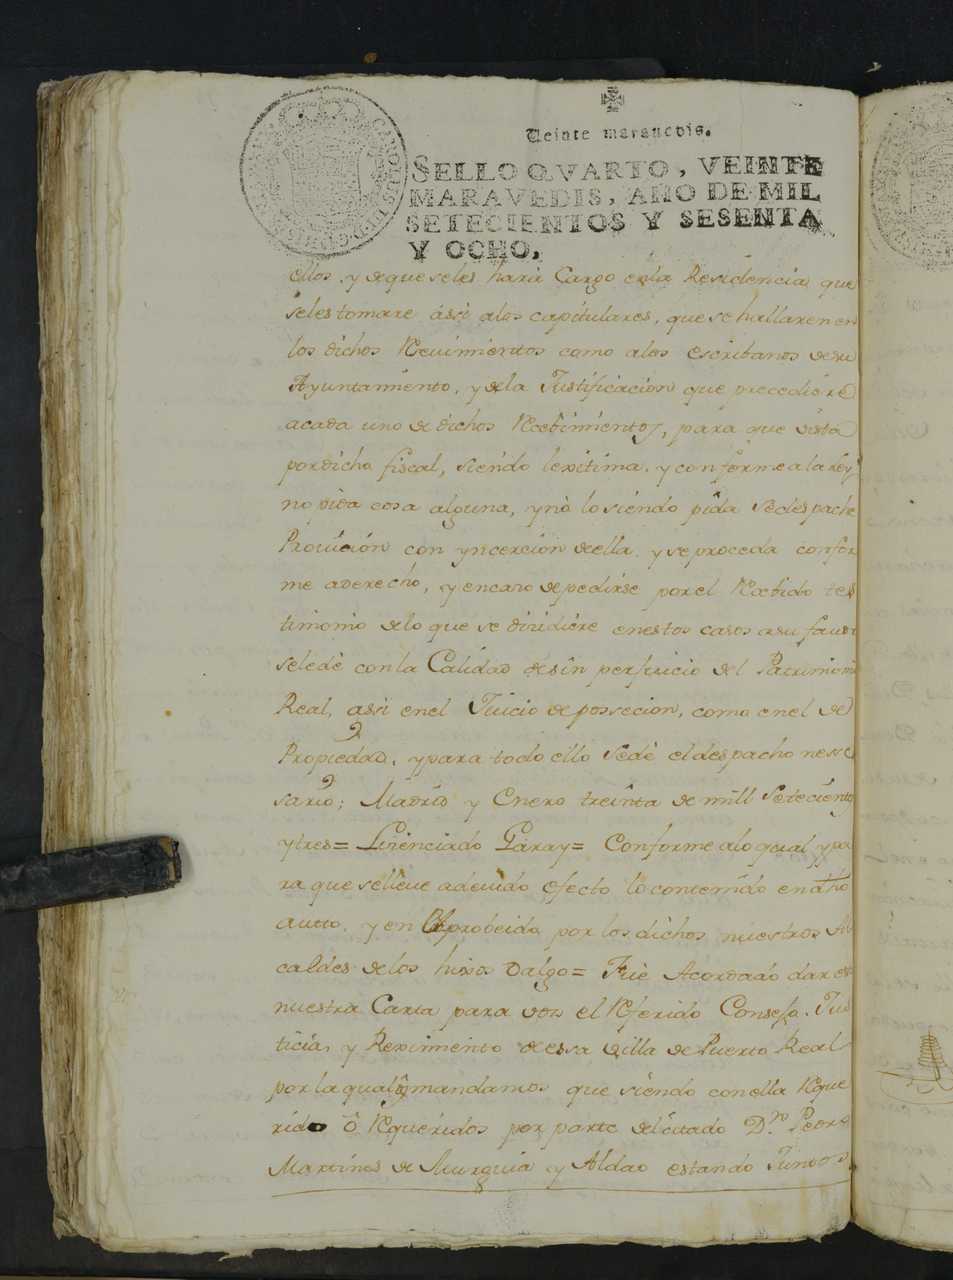 Veinte maravedis.
SELLO QVARTO, VEINTE
MARAVEDIS, AÑO DE MIL
SETECIENTOS Y SESENTA
Y OCHO.
ellos, y de que seles harà Cargo en la Residencia, que
seles tomare ássi alos capitulares, que se hallaren en
los dichos Recivimientos como alos escribanos de su
Ayuntamiento, y dela Justificacion que precediere
acada uno de dichos Recebimientos, para que vista
por dicho fiscal, siendo lexitima, y conforme a la Ley
no pida cosa alguna, y nò lo siendo pida se despache
Provición con yncercion de ella, y se proceda confor
me aderecho, y encaso de pedirse por el Recebido tes
timonio de lo que se dicidiere en estos casos a su favor
selede con la Calidad de sin perjuicio del Patrimonio
Real, assi en el Juicio de possecion, como en el de
Propiedad, y para todo ello se dè el despacho nesse
sario; Madrid y Enero treinta de mill Setecientos
y tres = Lizenciado Garay = Conforme alo qual y pa
ra que se lleve adevido efecto lo contenido en dho
autto, y en el probeido por los dichos nuestros Al
caldes de los hijos Dalgo = Fuè Acordado dar esta
nuestra Carta para vos el Referido Consejo, Jus
ticia, y Reximiento de essa Villa de Puerto Real
por la qual os mandamos que siendo con ella Reque
rido ò Requeridos por parte del citado Dn. Pedro
Martines de Murguia y Aldao estando Juntos